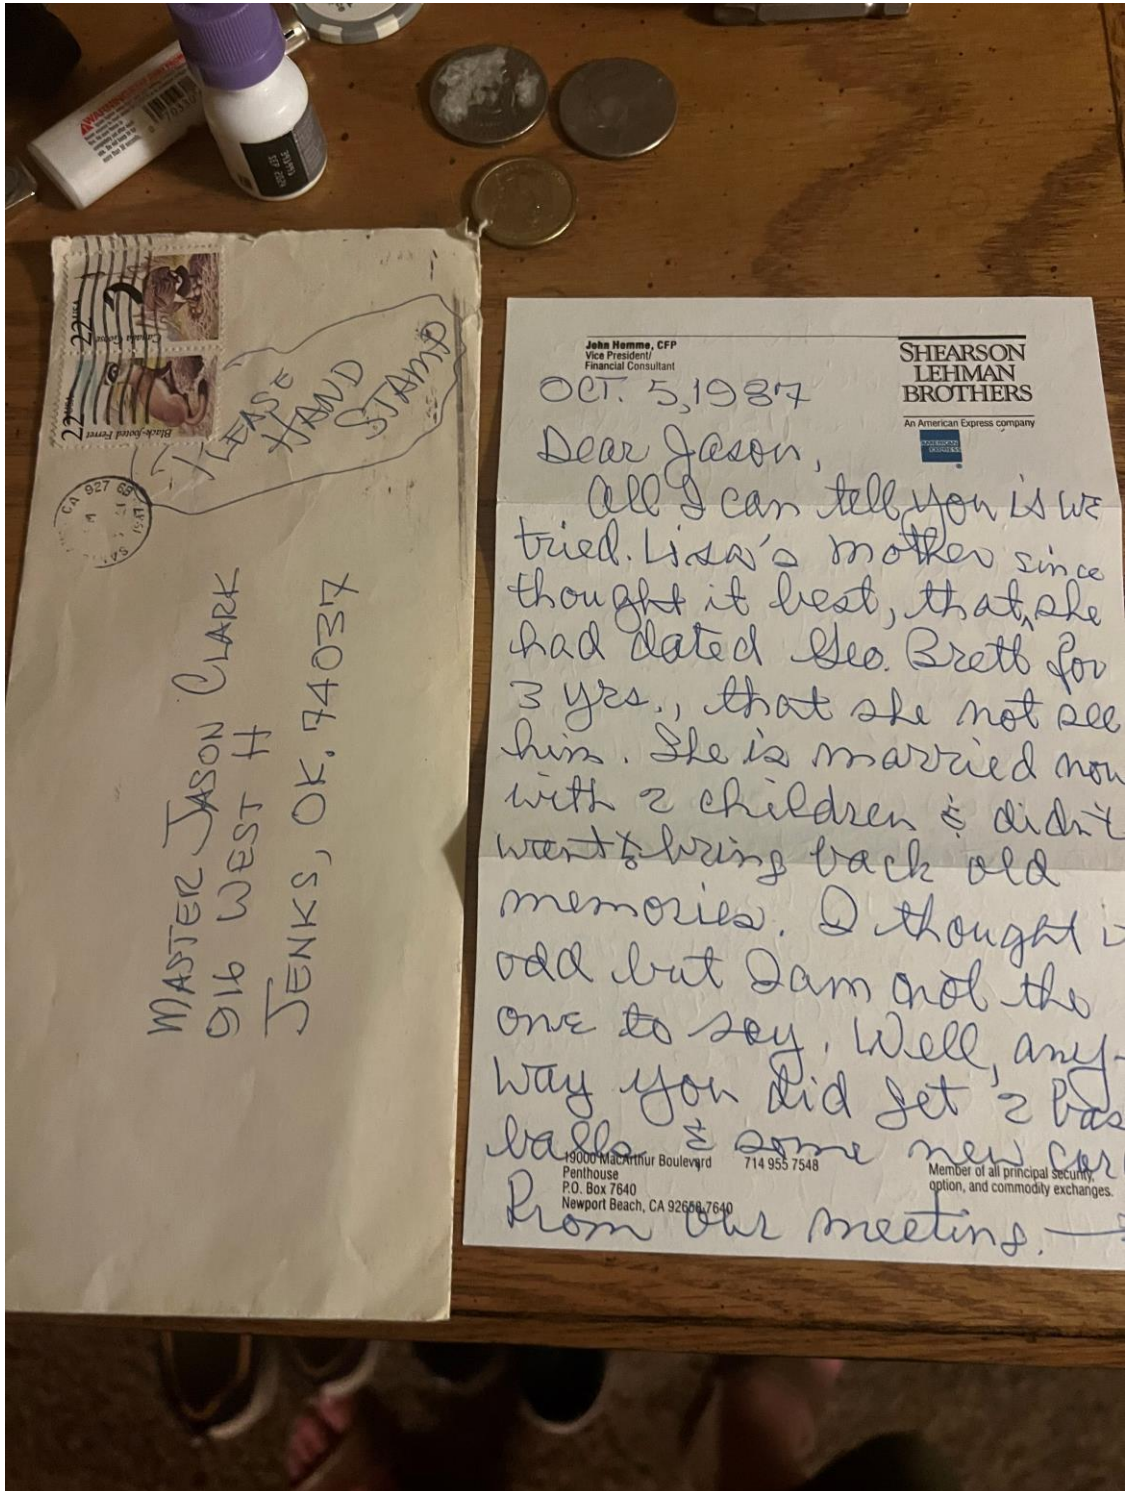 22 USA
Canada Goose
22 USA
Black-footed Ferret
PLEASE
HAND
STAMP
CA 927
MASTER JASON CLARK
916 WEST H
JENKS, OK. 74037
WARNING
SEP 202
John Homme, CFP
Vice President/
Financial Consultant
SHEARSON
LEHMAN
BROTHERS
An American Express company
AMERICAN
EXPRESS
OCT. 5, 1987
Dear Jason,
All I can tell you is we
tried. Lisa's mother since
thought it best, that, she
had dated Geo. Brett for
3 yrs., that she not see
him. She is married now
with 2 children & didn't
want to bring back old
memories. I thought i
odd but I am not the
one to say. Well, any-
way you did get 2 bas
balls & some new car
From our meeting. →
19000 MacArthur Boulevard
Penthouse
P.O. Box 7640
Newport Beach, CA 92658-7640
714 955 7548
Member of all principal security,
option, and commodity exchanges.